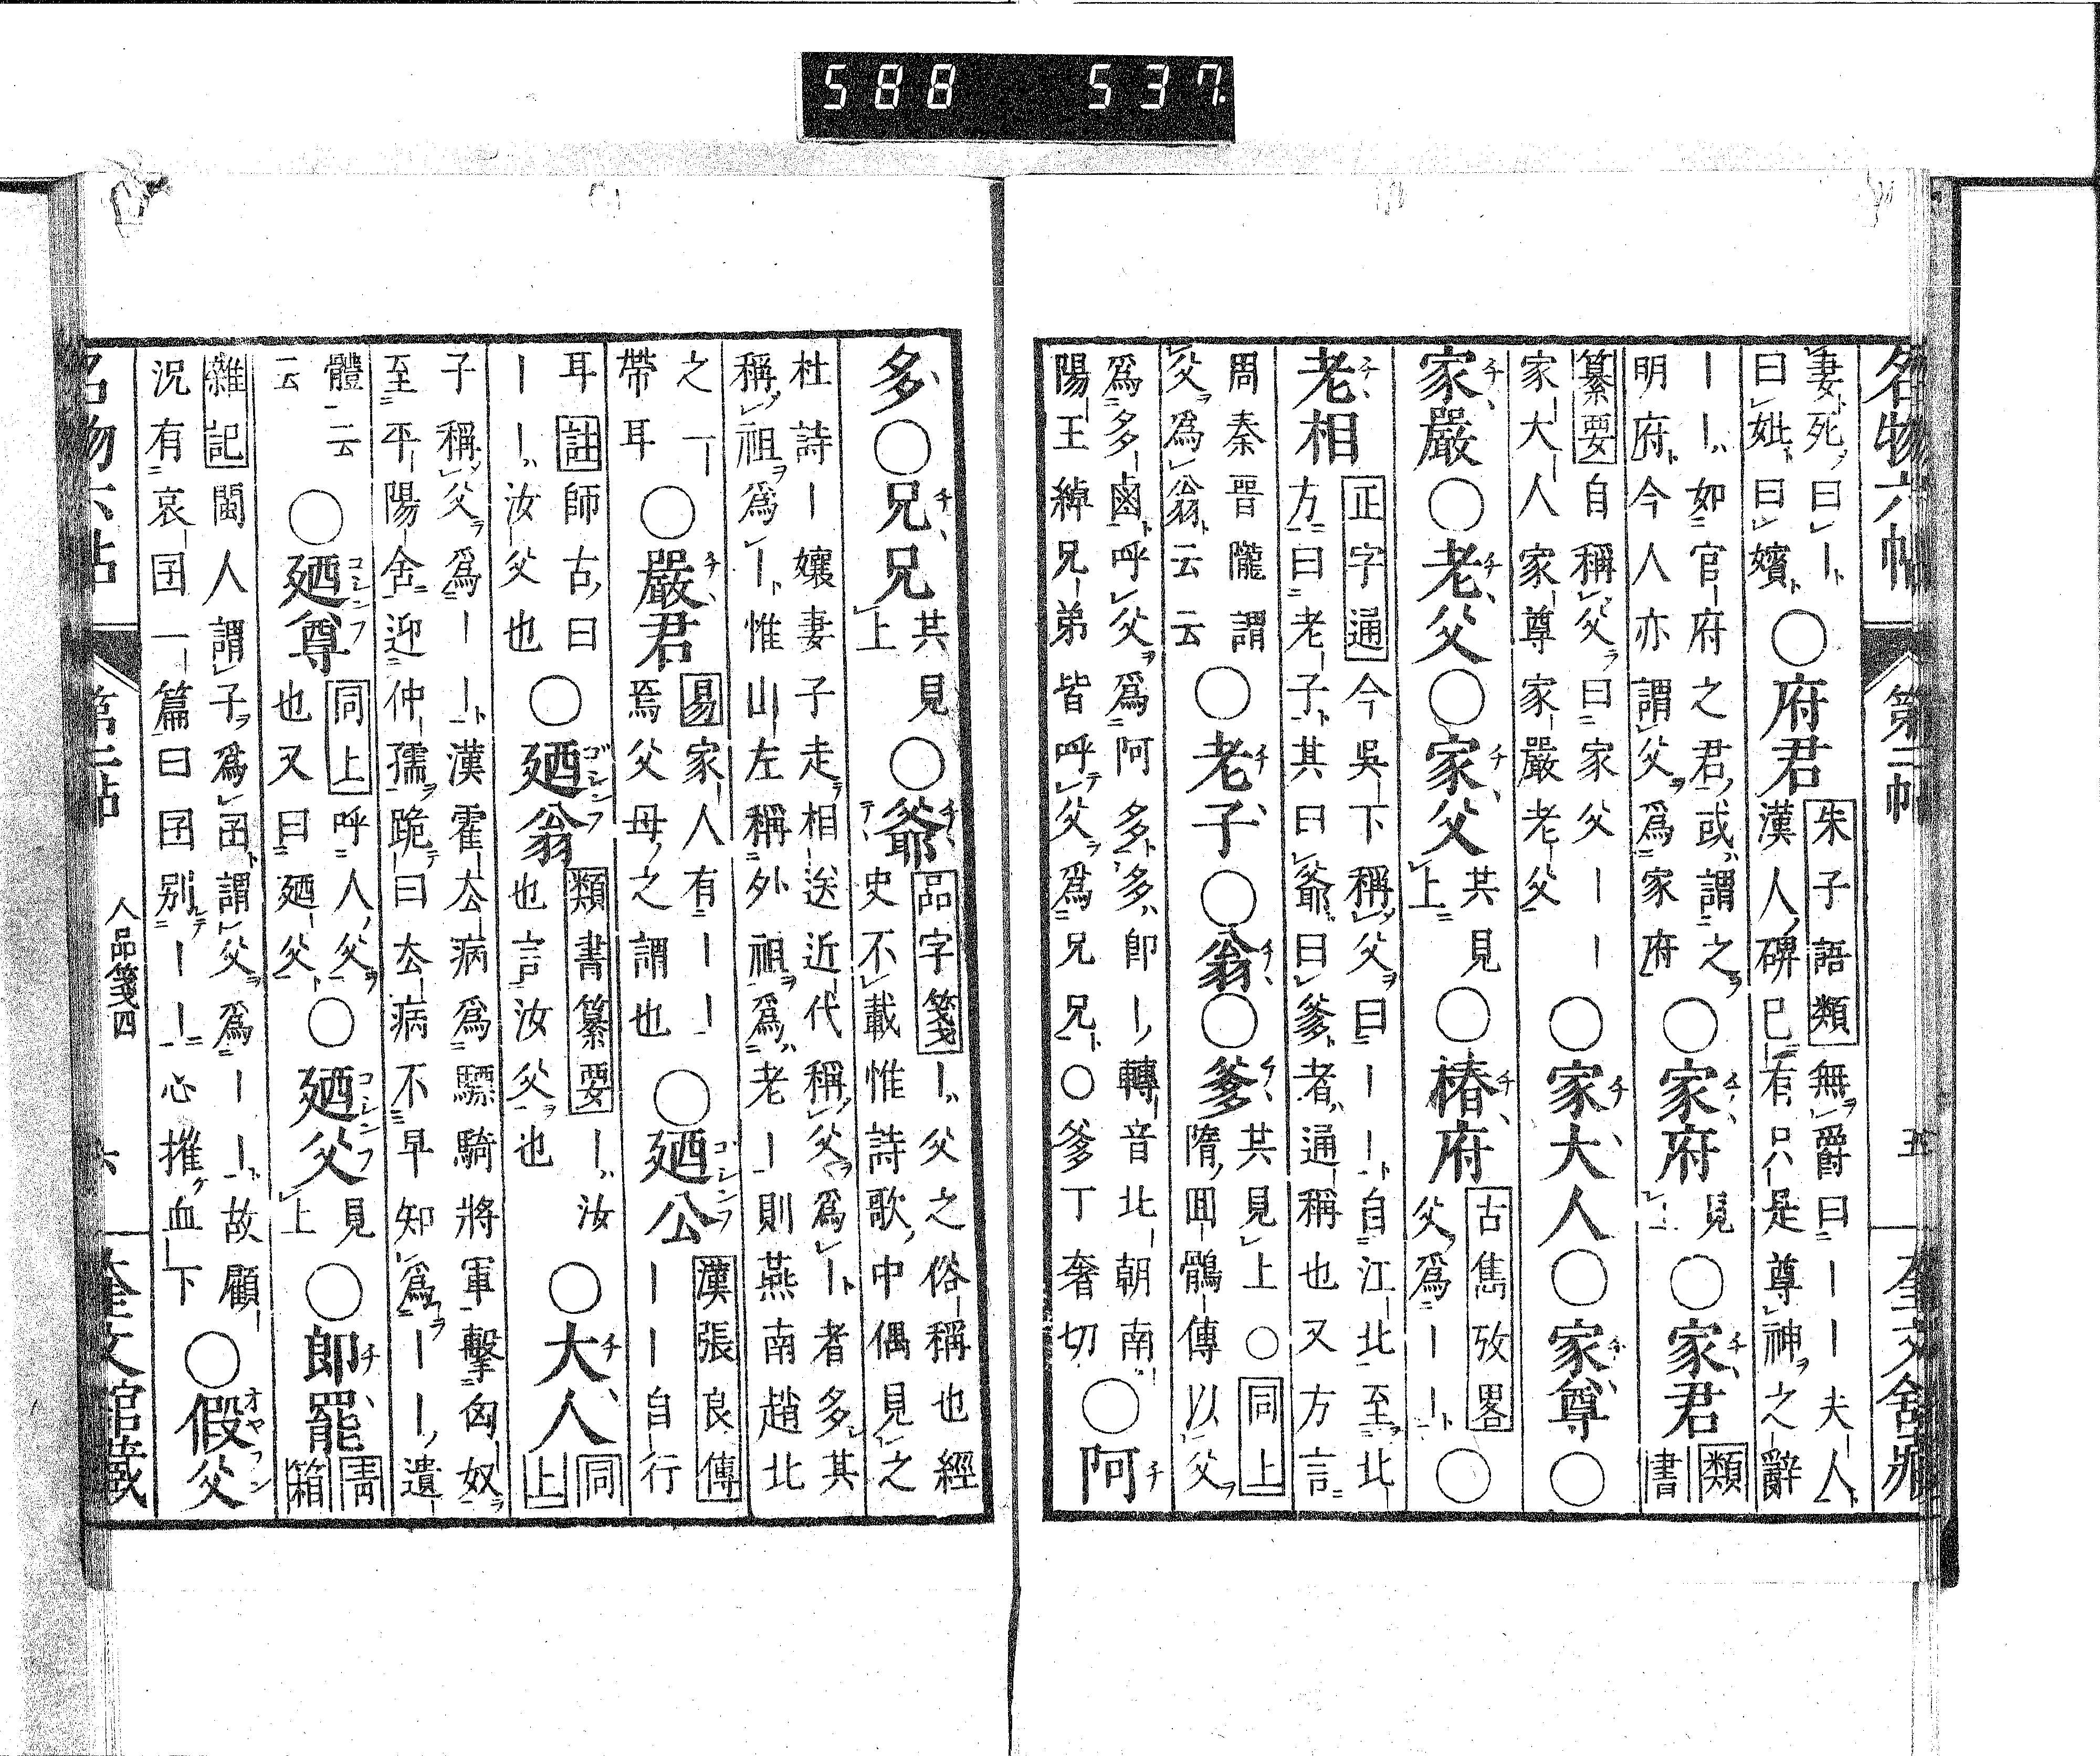 名物六帖 第二帖 五 奎文舘藏
妻死曰｜曰妣曰嬪○府君朱子語類無爵曰｜｜夫人漢人碑已有只是尊神之辭
｜｜如官府之君或謂之明府今人亦謂父爲家府○家府見上○家君類書
纂要自稱父曰家父｜｜家大人家尊家嚴老父○家大人○家尊○
家嚴○老父○家父共見上○椿府古雋攷畧父爲｜｜○
老相正字通今吳下稱父曰｜｜自江北至北方曰老子其曰爺曰爹者通稱也又方言
周秦晉隴謂父爲翁云云○老子○翁○爹共見上○同上隋回鶻傳以父
爲多鹵呼父爲阿多多卽｜轉音北朝南陽王綽兄弟皆呼父爲兄兄○爹丁奢切○阿
多○兄兄共見上○爺品字箋｜父之俗稱也經史不載惟詩歌中偶見之
杜詩｜孃妻子走相送近代稱父爲｜者多其稱祖爲｜惟山左稱外祖爲老｜則燕南趙北
之｜帶耳○嚴君易家人有｜｜焉父母之謂也○廼公漢張良傳｜｜自行
耳註師古曰｜｜汝父也○廼翁類書纂要｜汝也言汝父也○大人同上
子稱父爲｜｜漢霍去病爲驃騎將軍擊匈奴至平陽舍迎仲孺跪曰去病不早知爲｜｜遺
體云云○廼尊同上呼人父也又曰廼父○廼父見上○郎罷青箱
雜記閩人謂子爲囝謂父爲｜｜故顧況有哀囝一篇曰囝別｜｜心摧血下○假父
名物六帖 第二帖 人品箋四 六 奎文館藏
588 537